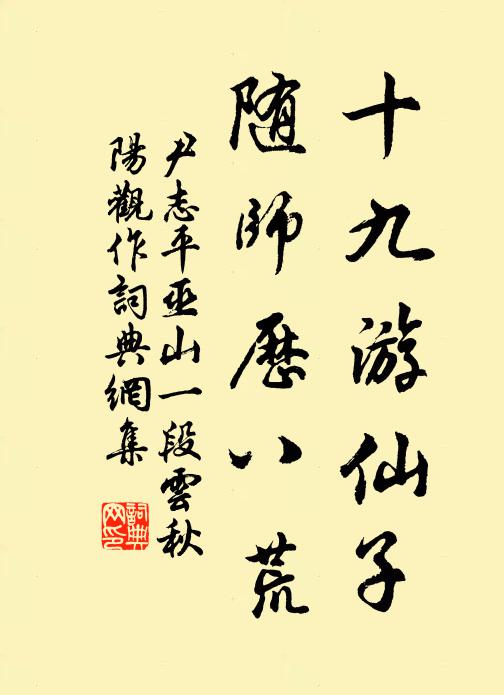 十九游仙子
随師歷八荒
尹志平巫山一段雲秋
陽觀作詞典網集
詞典网印